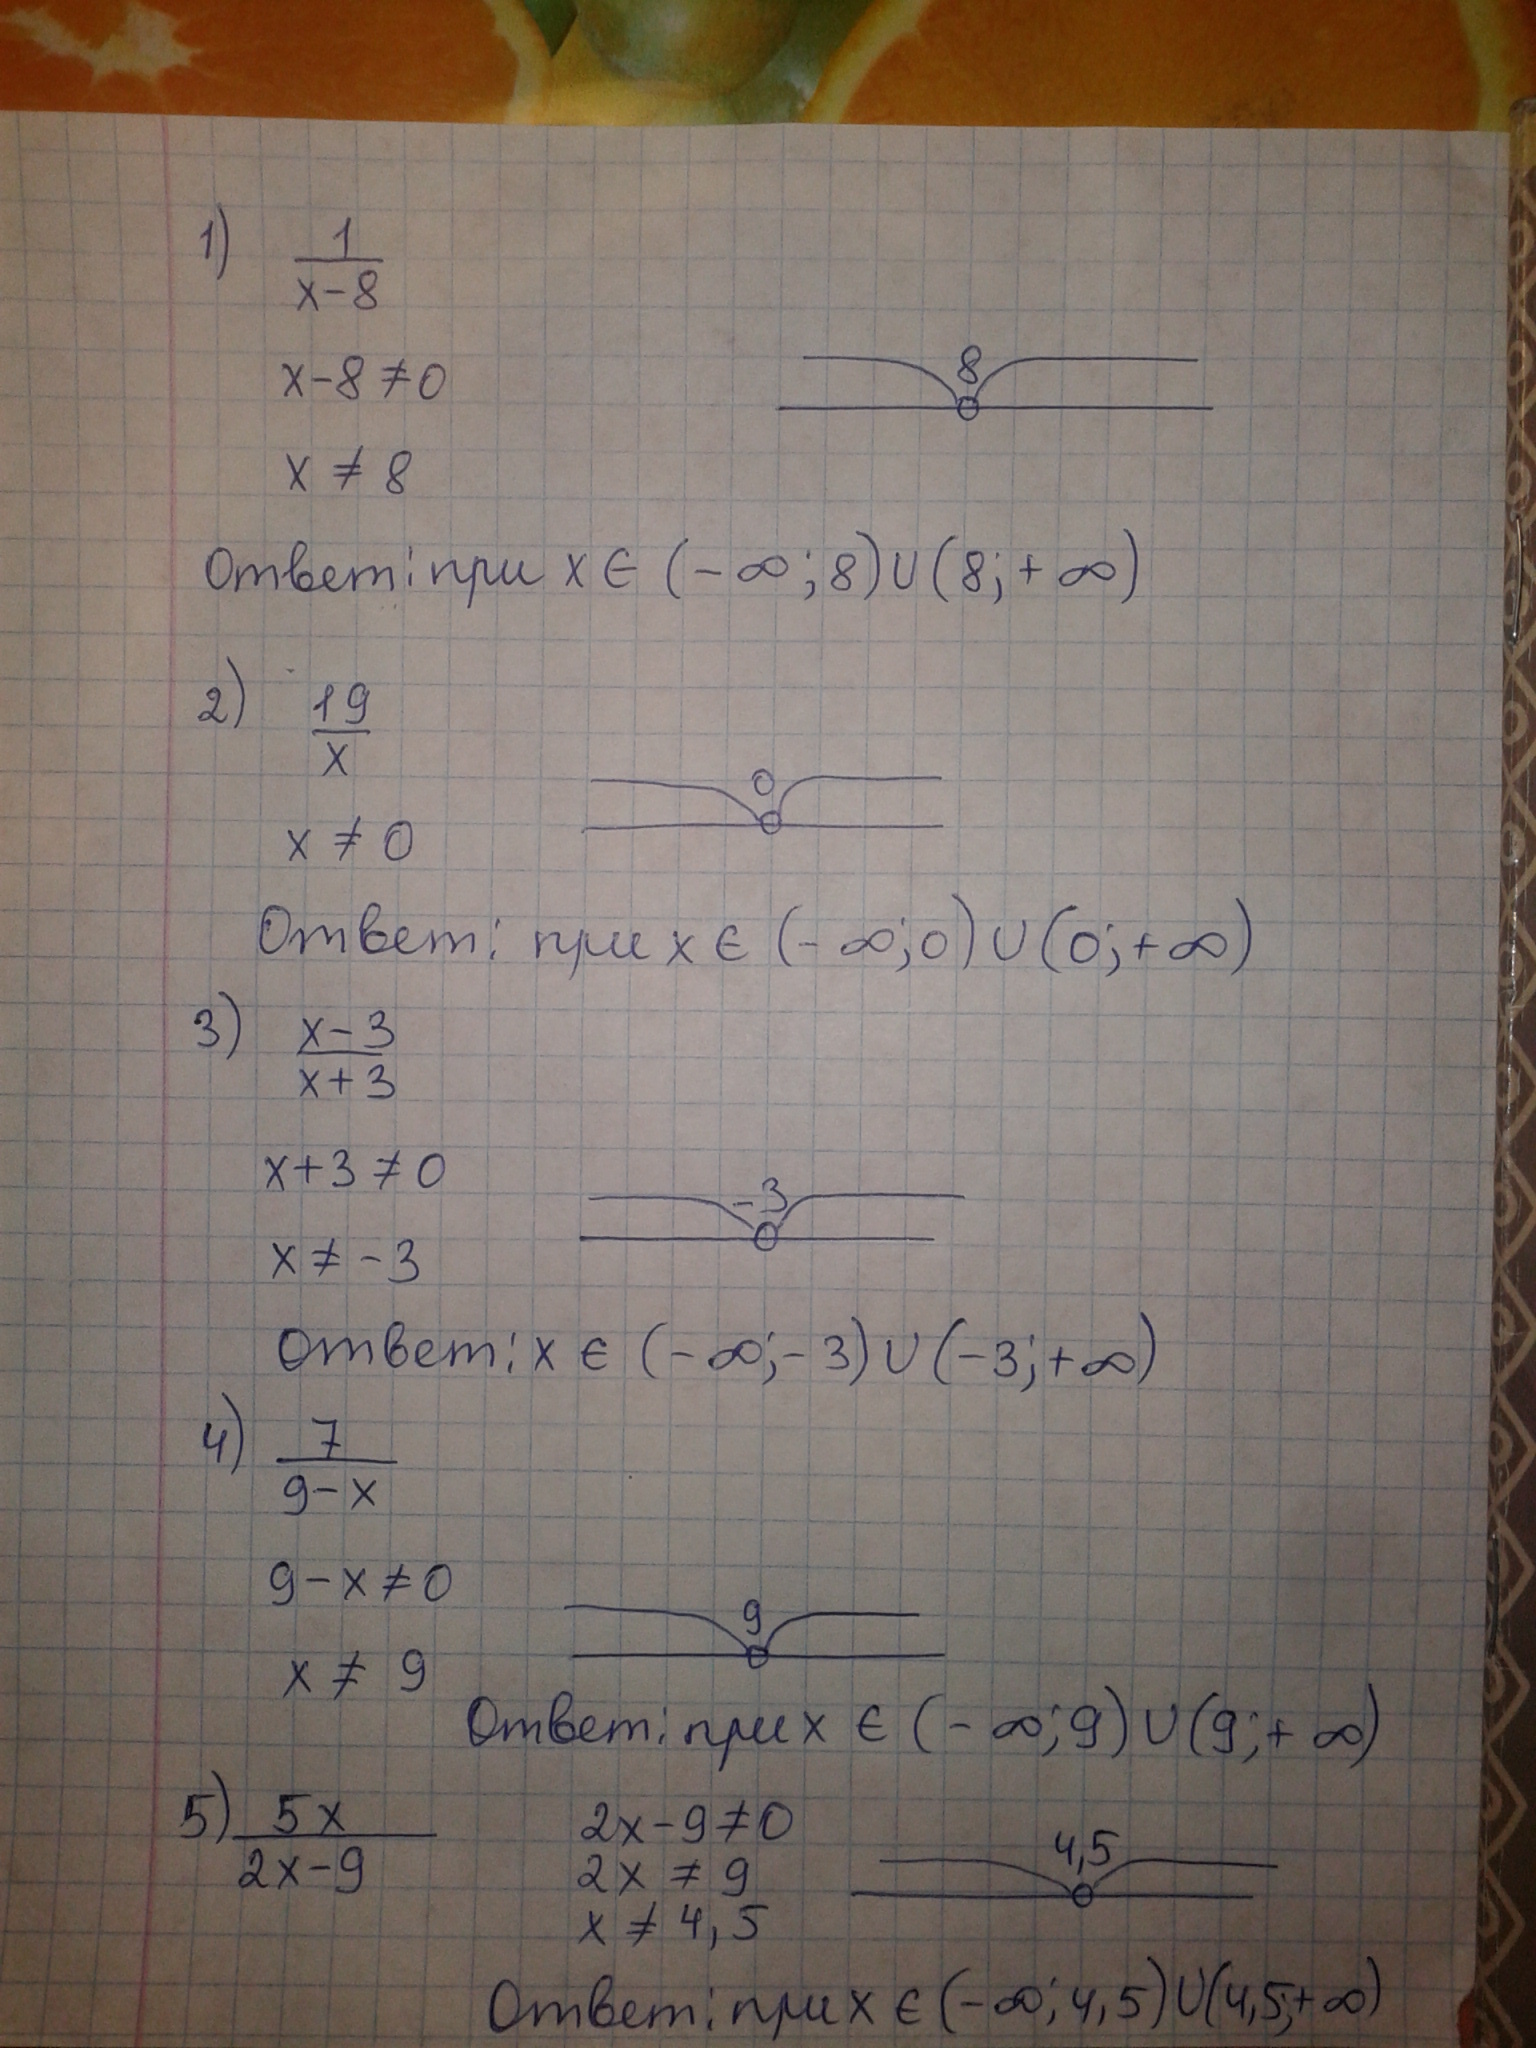 1) 1/(x-8)
x-8≠0
8
x ≠ 8
Ответ: при x ∈ (-∞; 8) ∪ (8; +∞)
2) 19/x
0
x ≠ 0
Ответ: при x ∈ (-∞; 0) ∪ (0; +∞)
3) (x-3)/(x+3)
x+3 ≠0
-3
x ≠ -3
Ответ: x ∈ (-∞; -3) ∪ (-3; +∞)
4) 7/(9-x)
9-x≠0
9
x ≠ 9
Ответ: при x ∈ (-∞; 9) ∪ (9; +∞)
5) 5x/(2x-9)
2x-9≠0
2x ≠ 9
x ≠ 4,5
4,5
Ответ: при x ∈ (-∞; 4,5) ∪ (4,5; +∞)